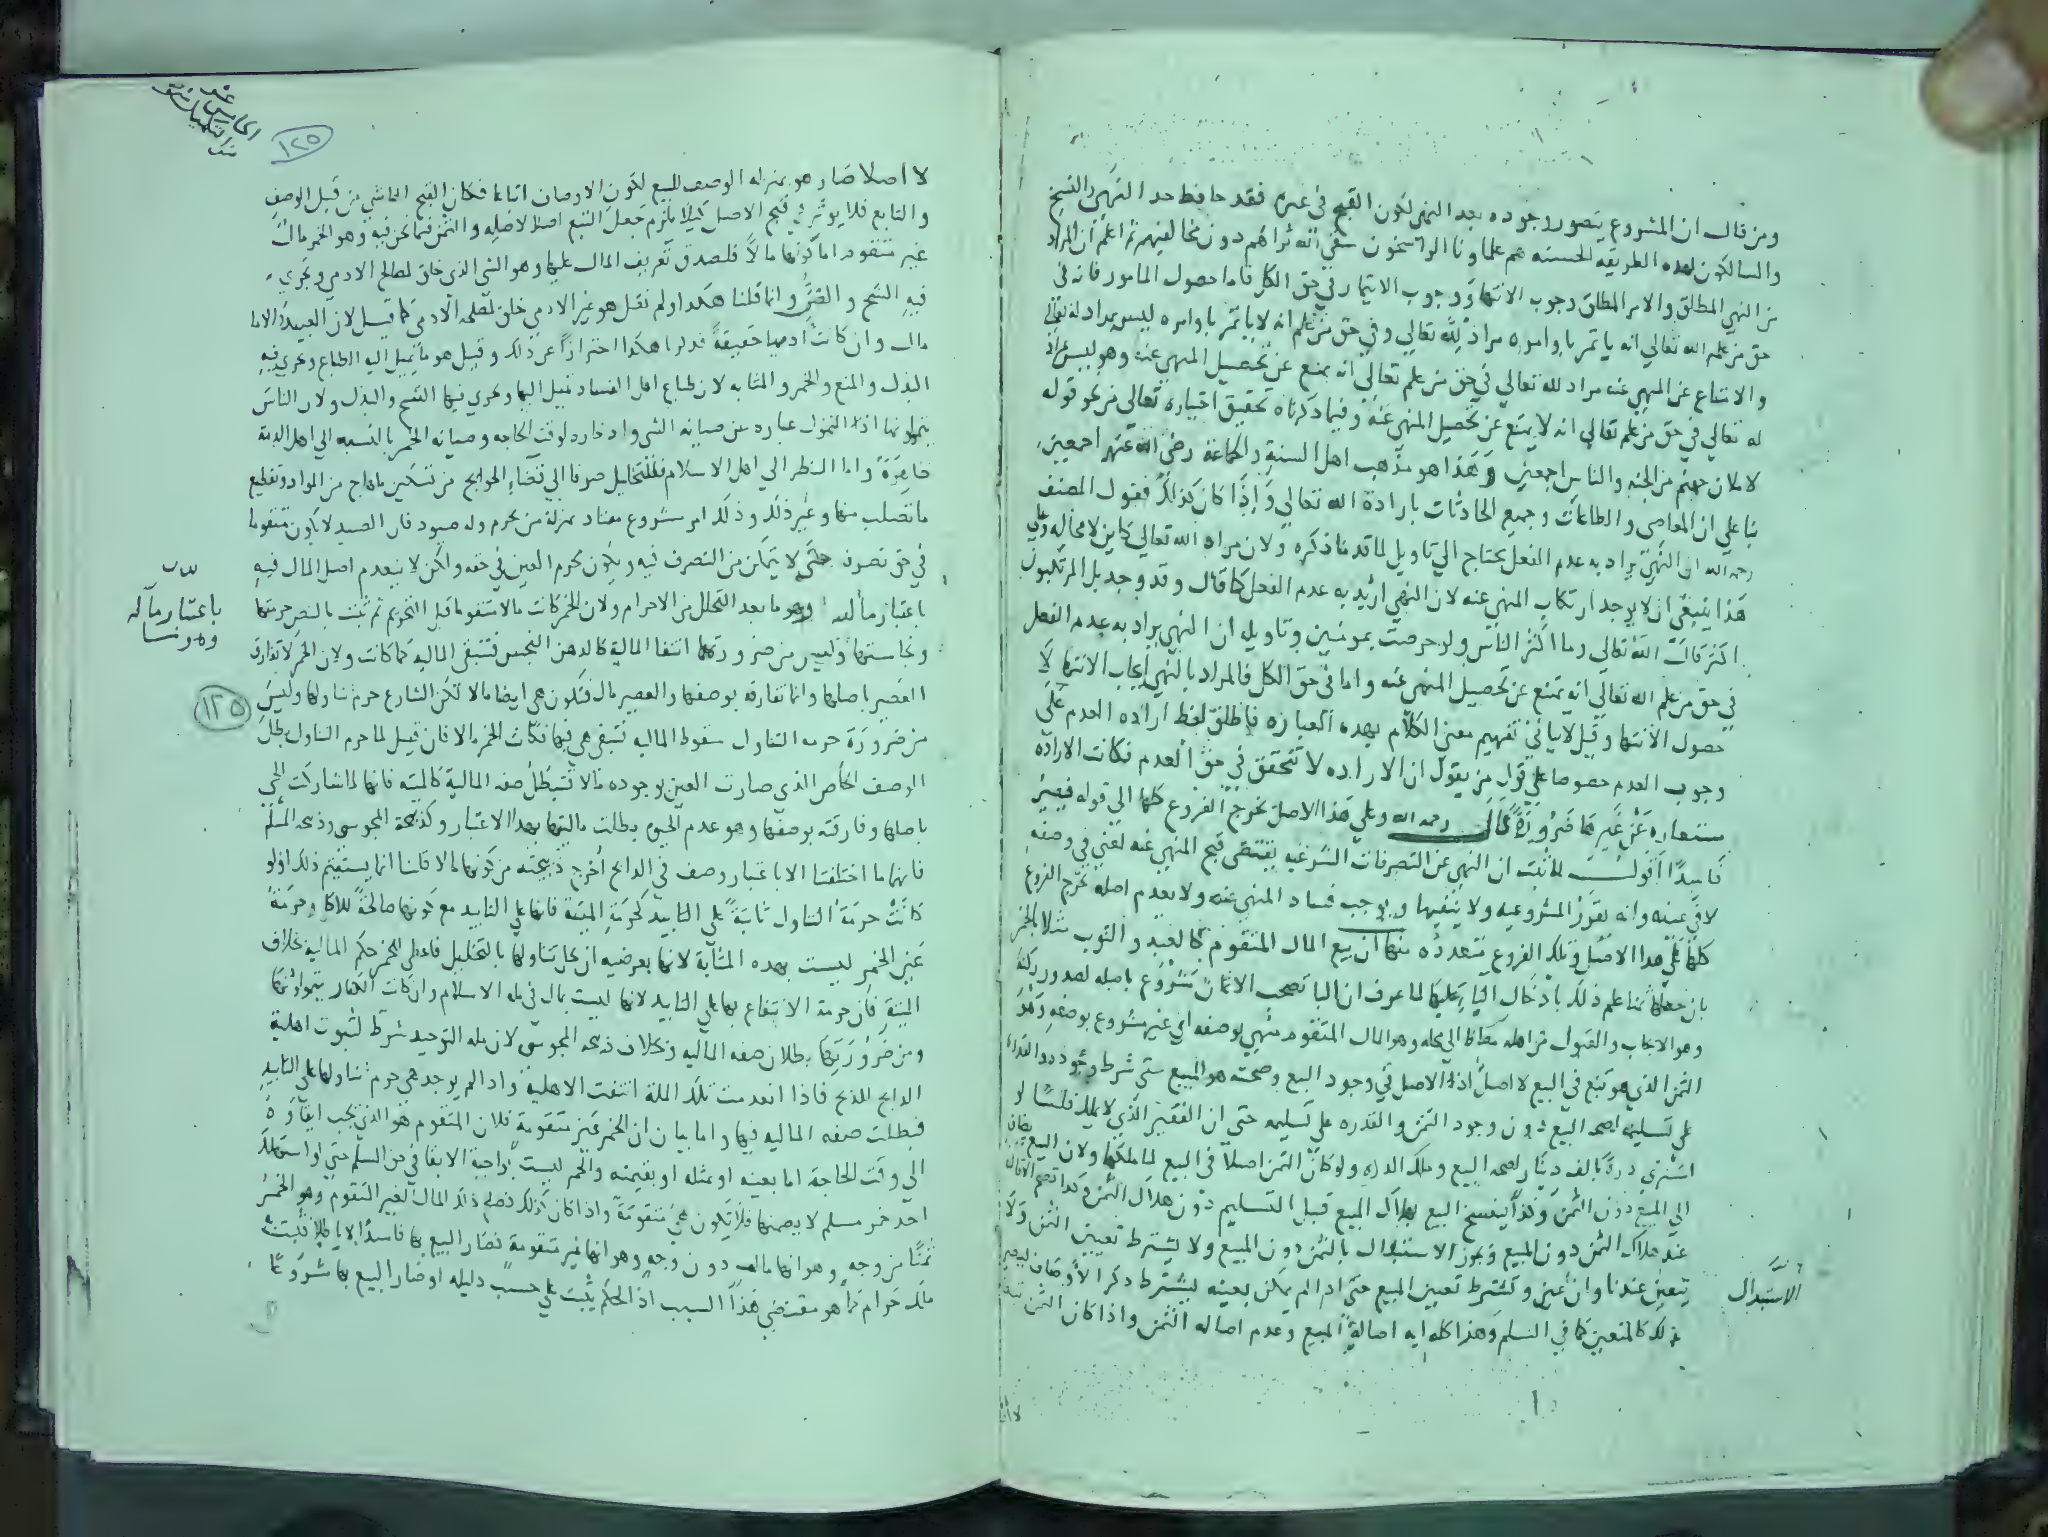 ومن قال ان المشروع يتصور وجوده بعد النهى لكون القبح في غيره فقد حافظ حد النهى والنسخ
والسالكون لهذه الطريقه الحسنه هم علماونا الراسخون سقى الله ثراهم دون مخالفيهم ثم اعلم أن المراد
من النهي المطلق والامر المطلق وجوب الانتها ووجوب الايتمار في حق الكل فاما حصول المامور فانه في
حق من علم الله تعالي انه ياتمر باوامره مراد لله تعالي وفي حق من علم انه لا ياتمر باوامره ليس بمراد له تعالي
والامتناع عن المنهي عنه مراد لله تعالي في حق من علم تعالي انه يمتنع عن تحصيل المنهي عنه وهو ليس بمراد
له تعالي في حق من علم تعالي انه لا يمتنع عن تحصيل المنهي عنه وفيما ذكرناه تحقيق اخباره تعالي من نحو قوله
لاملان جهنم من الجنه والناس اجمعين وهذا هو مذهب اهل السنة والجماعة رضي الله عنهم اجمعين
بنا علي ان المعاصى والطاعات وجميع الحادثات بارادة الله تعالي وإذا كان كذلك فقول المصنف
رحمه الله ان النهي يراد به عدم الفعل يحتاج الي تاويل لما قد منا ذكره ولان مراد الله تعالي كاين لا محاله وعلي
هذا ينبغي ان لا يوجد ارتكاب المنهي عنه لان النهى اريد به عدم الفعل كما قال وقد وجد بل المرتكبون
اكثر قال الله تعالي وما اكثر الناس ولو حرصت بمومنين وتاويله ان النهي يراد به عدم الفعل
في حق من علم الله تعالي انه يمتنع عن تحصيل المنهي عنه واما في حق الكل فالمراد بالنهي ايجاب الانتها لا
حصول الانتها وقيل لا باس في تفهيم معني الكلام بهذه العبارة فاطلق لفظ ارادة العدم على
وجوب العدم خصوصا علي قول من يقول ان الاراده لا تتحقق في حق العدم فكانت الاراده
مستعارة عن غيرها ضرورة قال رحمه الله وعلي هذا الاصل تخرج الفروع كلها الي قوله فيصير
فاسدًا اقول لما ثبت ان النهي عن التصرفات الشرعيه يقتضي قبح المنهي عنه لمعني في وصفه
لا في عينه وانه يقرر المشروعيه ولا ينفيها ويوجب فساد المنهي عنه ولا يعدم اصله تخرج الفروع
كلها علي هذا الاصل وتلك الفروع متعدده منها ان بيع المال المتقوم كالعبد والثوب مثلا بالخمر
بان جعلها ثمنا علم ذلك بادخال الباء عليها لما عرف ان البا تصحب الاثمان مشروع باصله لصدور ركنه
وهو الايجاب والقبول من اهله مضافا الي محله وهو المال المتقوم منهي بوصفه اي غير مشروع بوصفه وهو
الثمن الذي هو تبع في البيع لا اصل اذ الاصل في وجود البيع وصحته هو المبيع حتي شرط وجوده والقدرة
علي تسليمه لصحه البيع دون وجود الثمن والقدره علي تسليمه حتى ان الفقير الذي لا يملك فلسًا لو
اشتري درة بالف دينار لصح البيع وملك الدره ولو كان الثمن اصلا في البيع لما ملكها ولان البيع يضاف
الي المبيع دون الثمن وكذا ينفسخ البيع بهلاك المبيع قبل التسليم دون هلاك الثمن وكذا تصح الاقاله
عند هلاك الثمن دون المبيع ويجوز الاستبدال بالثمن دون المبيع ولا يشترط تعيين الثمن ولا
يتعين عندنا وان عين ويشترط تعيين المبيع حتي اذا لم يكن بعينه يشترط ذكر الاوصاف ليصير
بذلك كالمتعين كما في السلم وهذا كله اية اصالة المبيع وعدم اصاله الثمن واذا كان الثمن تبعا
الاستبدال
لا ا
١٢٥
لا اصلا صار هو بمنزله الوصف للبيع لكون الاوصاف اتباعا فكان القبح الناشي من قبل الوصف
والتابع فلا يوثر في قبح الاصل كيلا يلزم جعل التبع اصلا والاصل والثمن فيما نحن فيه وهو الخمر مال
غير متقوم اما كونها مالا فلصدق تعريف المال عليها وهو الشي الذي خلق لمصالح الادمي ويجري
فيه الشح والضن وانما قلنا هكذا ولم نقل هو غير الادمي خلق لمصلحه الادمي كما قيل لان العبيد والاما
مال وان كانت ادميا حقيقة قولنا هكذا احترازا عن ذلك وقيل هو ما يميل اليه الطباع ويجري فيه
البذل والمنع والخمر والمثابه لان طباع اهل الفساد تميل اليها ويجري فيها الشح والبذل ولان الناس
يتمولونها اذ التمول عباره عن صيانه الشي وادخاره لوقت الحاجه وصيانه الخمر بالنسبه الي اهل الذمة
ظاهرة واما النظر الي اهل الاسلام فللتخليل صوفا الي قضاء الحوايج من تسكين ما هاج من المواد وتقطيع
ما تصلب منها وغير ذلك وذلك امر مشروع معتاد بمنزلة من يحرم وله صيود فان الصيد لا يكون متقوما
في حق تصرفه حتى لا يتمكن من التصرف فيه ويكون محرم العين في حقه ولكن لا ينعدم اصل المال فيه
باعتبار مآله وهو ما بعد التحلل من الاحرام ولان الخمر كانت مالا متقوما قبل التحريم ثم ثبت بالنص حرمتها
ونجاستها وليس من ضرورتها انتفا المالية كالدهن النجس فتبقى الماليه كما كانت ولان الخمر لا تفارق
العصير باصلها وانما تفارقه بوصفها والعصير مال فتكون هي ايضا مالا لكن الشارع حرم تناولها وليس
من ضرورة حرمه التناول سقوط الماليه فتبقى هي فيها فكانت الخمر مالا فان قيل لما حرم التناول بطل
الوصف الخاص الذي صارت العين بوجوده مالا فتبطل صفه المالية كالميته فانها لما شاركت الحي
باصلها وفارقته بوصفها وهو عدم الحيوه بطلت ماليتها بهذا الاعتبار وكذبيحة المجوسي وذبيحه المسلم
فانهما ما اختلفتا الا باعتبار وصف في الذابح أخرج ذبيحته من كونها مالا قلنا انما يستقيم ذلك ان لو
كانت حرمة التناول ثابتة على التابيد كحرمة الميتة فانها علي التابيد مع كونها صالحة للاكل وحرمة
عين الخمر ليست بهذه المثابة لانها بعرضيه ان يحل تناولها بالتخليل فاعطي للخمر حكم المالية بخلاف
الميتة فان حرمة الانتفاع بها علي التابيد لانها ليست بمال في مله الاسلام وان كانت الكفار يتمولونها
ومن ضرورتها بطلان صفه الماليه وبخلاف ذبيحه المجوسي لان مله التوحيد شرط لثبوت اهلية
الذابح للذبح فاذا انعدمت تلك الملة انتفت الاهليه واذا لم يوجد هي حرم تناولها علي التابيد
فبطلت صفه الماليه فيها واما بيان ان الخمر غير متقومة فلان المتقوم هو الذي يجب ابقاوه
الي وقت الحاجة اما بعينه او بمثله او بقيمته والخمر ليست بواجبة الابقا في حق المسلم حتي لو استهلك
احد خمر مسلم لا يضمنها فلا تكون هي متقومة واذا كان كذلك فصلح ذلك المال الغير المتقوم وهو الخمر
ثمنًا من وجه وهو انها مال دون وجه وهو انها غير متقومة فصار البيع بها فاسدًا لا باطلا فيثبت به
ملك حرام كما هو مقتضي هذا السبب اذ الحكم يثبت علي حسب دليله او صار البيع بها مشروعا
باعتبار مآله
١٢٥